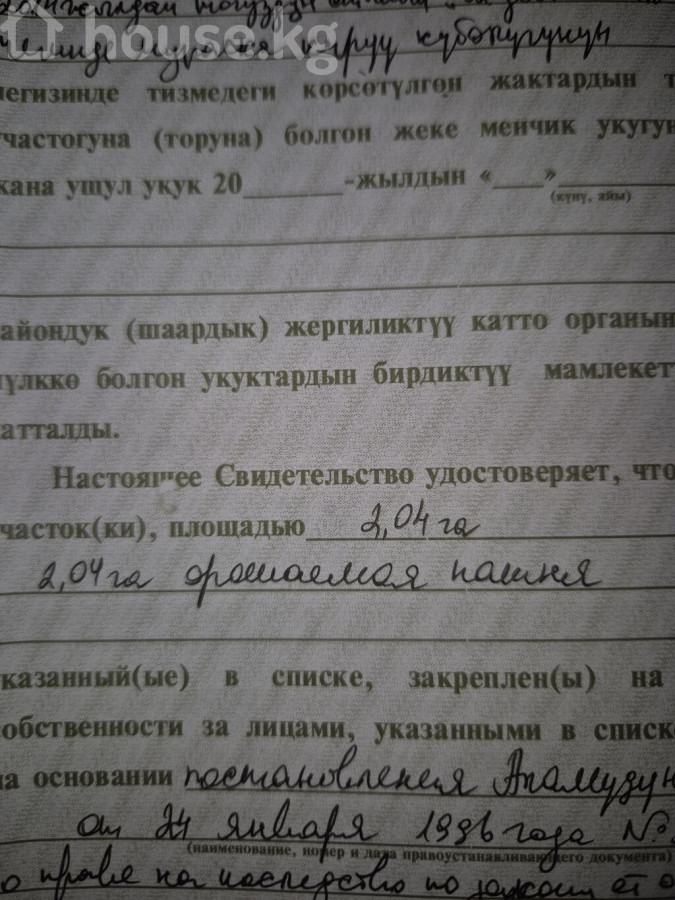 house.kg
мураска кирүү күбөлүгүнүн
негизинде тизмедеги көрсөтүлгөн жактардын т
участогуна (торуна) болгон жеке менчик укугун
жана ушул укук 20_______-жылдын «___»________
(күнү, айы)
айондук (шаардык) жергиликтүү катто органын
мүлккө болгон укуктардын бирдиктүү мамлекет
атталды.
Настоящее Свидетельство удостоверяет, что
участок(ки), площадью 2,04 га
2,04 га орошаемая пашня
указанный(ые) в списке, закреплен(ы) на
собственности за лицами, указанными в списке
на основании постановления Аламудун
от 24 января 1996 года №
(наименование, номер и дата правоустанавливающего документа)
о праве на наследство по закону от